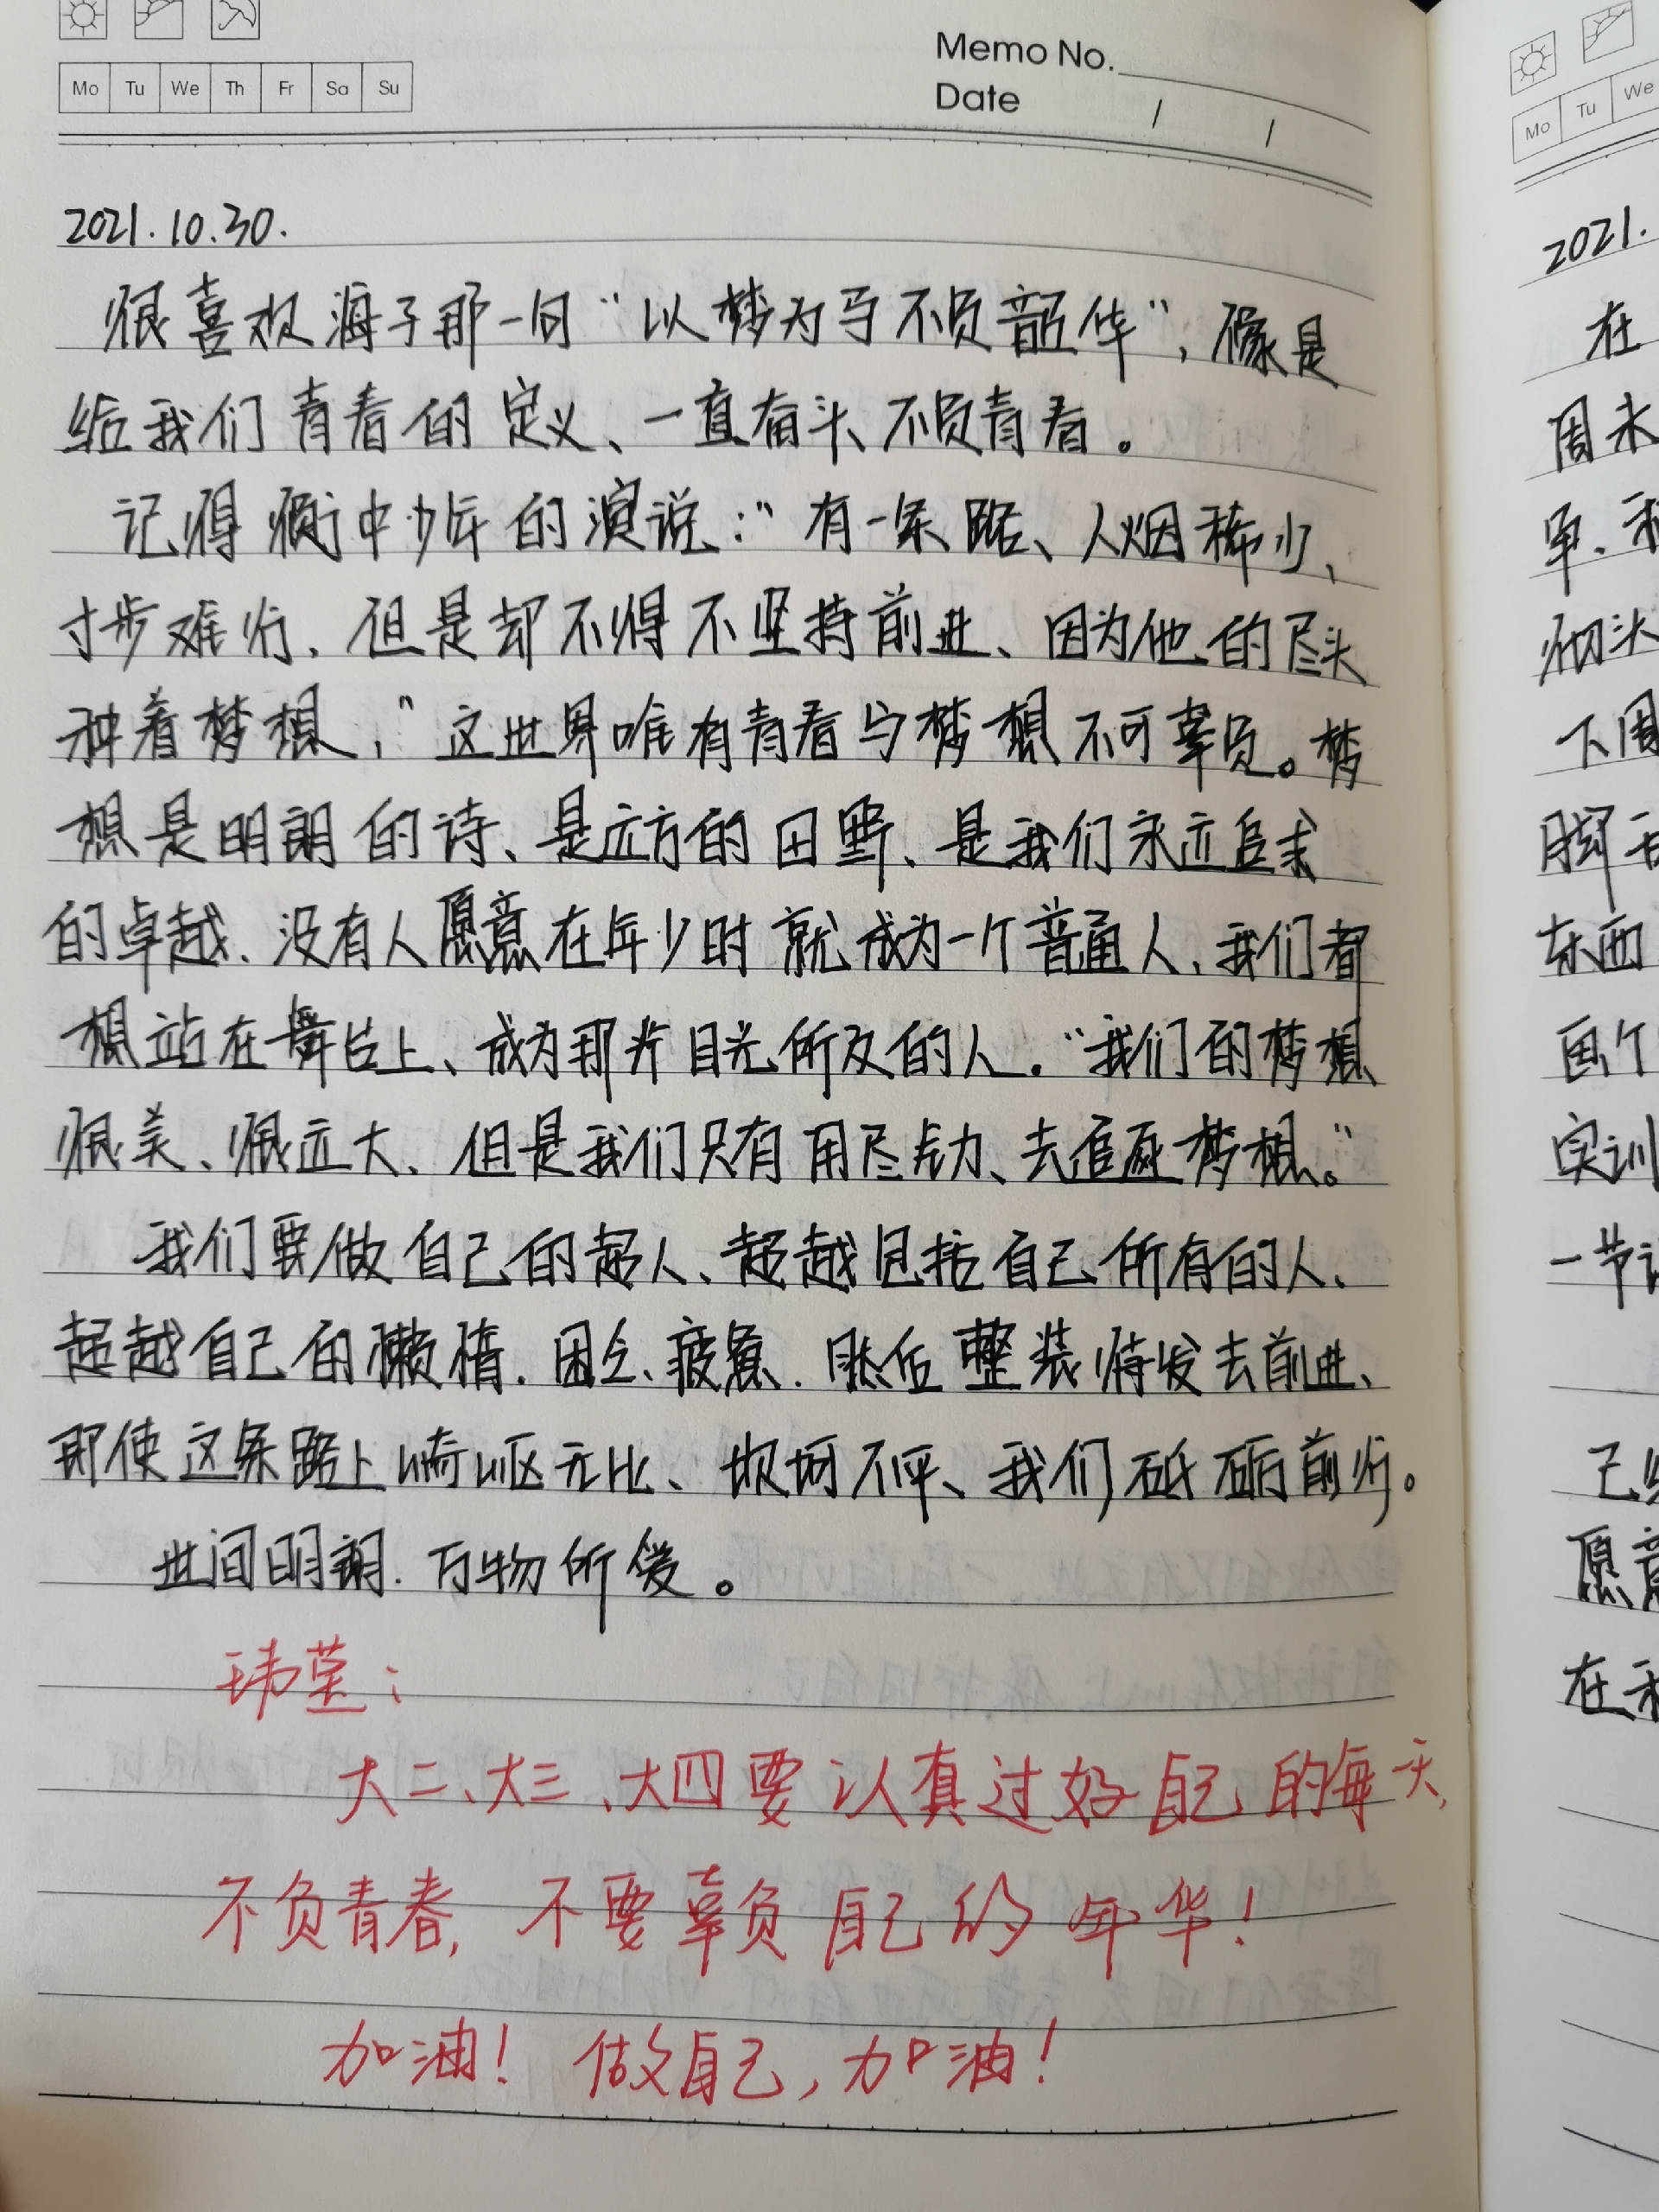 Memo No.
Mo Tu We Th Fr Sa Su
Date / /
2021.10.30.
很喜欢海子那一句“以梦为马不负韶华”，像是
给我们青春的定义、一直奋斗、不负青春。
记得衡中少年的演说：“有一条路、人烟稀少、
寸步难行．但是却不得不坚持前进、因为他的尽头
种着梦想，”这世界唯有青春与梦想不可辜负。梦
想是明朗的诗、是远方的田野、是我们永远追求
的卓越．没有人愿意在年少时就成为一个普通人．我们都
想站在舞台上、成为那片目光所及的人．“我们的梦想
很美、很远大、但是我们只有用尽全力、去追逐梦想。”
我们要做自己的超人、超越包括自己所有的人、
超越自己的懒惰．困乏、疲惫．然后整装待发去前进、
即使这条路上崎岖无比、坎坷不平、我们砥砺前行。
世间明朗．万物所爱。
玮莹：
大二、大三、大四要认真过好自己的每一天，
不负青春，不要辜负自己的年华！
加油！做自己，加油！
Mo Tu We
2021.
在
周末
下周
东西
画个
实训
一节
愿意